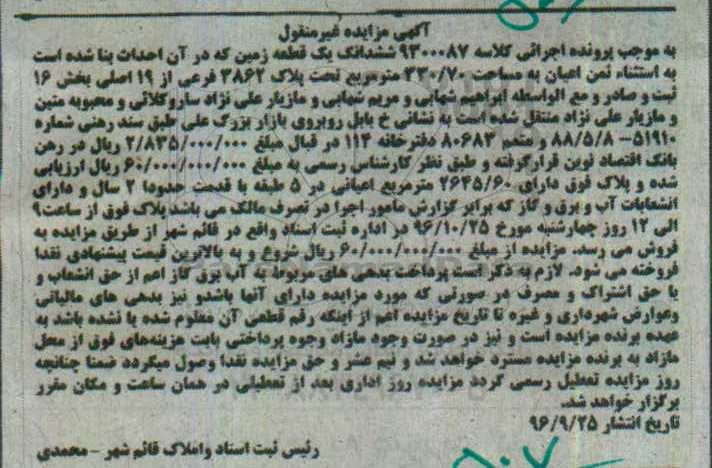 آگهی مزایده غیرمنقول
به موجب پرونده اجرائی کلاسه ۹۳۰۰۰۸۷ ششدانگ یک قطعه زمین که در آن احداث بنا شده است
به استثناء ثمن اعیان به مساحت ۳۳۰/۷۰ مترمربع تحت پلاک ۳۸۶۲ فرعی از ۱۹ اصلی بخش ۱۶
ثبت و صادر و مع الواسطه ابراهیم شهابی و مریم شهابی و مازیار علی نژاد ساروکلائی و محبوبه متین
و مازیار علی نژاد منتقل شده است به نشانی خ بابل روبروی بازار بزرگ علی طبق سند رهنی شماره
۵۱۹۱۰-۸۸/۵/۸ و متمم ۸۰۶۸۳ دفترخانه ۱۱۴ در قبال مبلغ ۲/۸۳۵/۰۰۰/۰۰۰ ریال در رهن
بانک اقتصاد نوین قرارگرفته و طبق نظر کارشناس رسمی به مبلغ ۶۰/۰۰۰/۰۰۰/۰۰۰ ریال ارزیابی
شده و پلاک فوق دارای ۲۶۴۵/۶۰ مترمربع اعیانی در ۵ طبقه با قدمت حدودا ۲ سال و دارای
انشعابات آب و برق و گاز که برابر گزارش مامور اجرا در تصرف مالک می باشد پلاک فوق از ساعت۹
الی ۱۲ روز چهارشنبه مورخ ۹۶/۱۰/۲۵ در اداره ثبت اسناد واقع در قائم شهر از طریق مزایده به
فروش می رسد. مزایده از مبلغ ۶۰/۰۰۰/۰۰۰/۰۰۰ ریال شروع و به بالاترین قیمت پیشنهادی نقدا
فروخته می شود. لازم به ذکر است پرداخت بدهی های مربوط به آب برق گاز اعم از حق انشعاب و
یا حق اشتراک و مصرف در صورتی که مورد مزایده دارای آنها باشدو نیز بدهی های مالیاتی
وعوارض شهرداری و غیره تا تاریخ مزایده اعم از اینکه رقم قطعی آن معلوم شده یا نشده باشد به
عهده برنده مزایده است و نیز در صورت وجود مازاد وجوه پرداختی بابت هزینه‌های فوق از محل
مازاد به برنده مزایده مسترد خواهد شد و نیم عشر و حق مزایده نقدا وصول میگردد ضمنا چنانچه
روز مزایده تعطیل رسمی گردد مزایده روز اداری بعد از تعطیلی در همان ساعت و مکان مقرر
برگزار خواهد شد.
تاریخ انتشار ۹۶/۹/۲۵
رئیس ثبت اسناد واملاک قائم شهر - محمدی